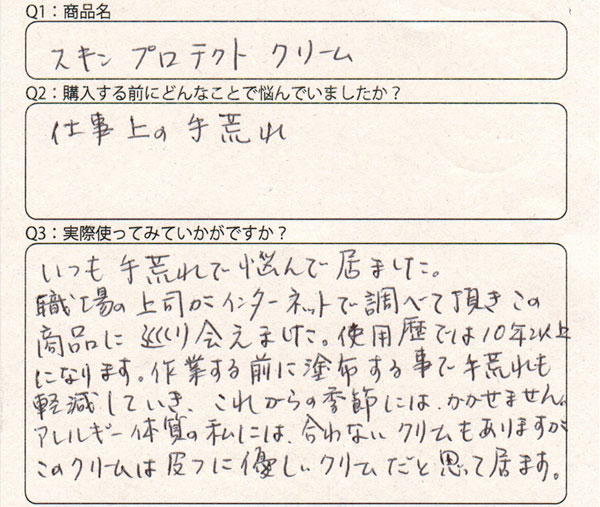 Q1：商品名
スキン プロテクト クリーム
Q2：購入する前にどんなことで悩んでいましたか？
仕事上の手荒れ
Q3：実際使ってみていかがですか？
いつも手荒れで悩んで居ました。
職場の上司がインターネットで調べて頂きこの
商品に巡り会えました。使用歴では10年以上
になります。作業する前に塗布する事で手荒れも
軽減していき、これからの季節には、かかせません。
アレルギー体質の私には、合わないクリームもありますが
このクリームは皮フに優しいクリームだと思って居ます。